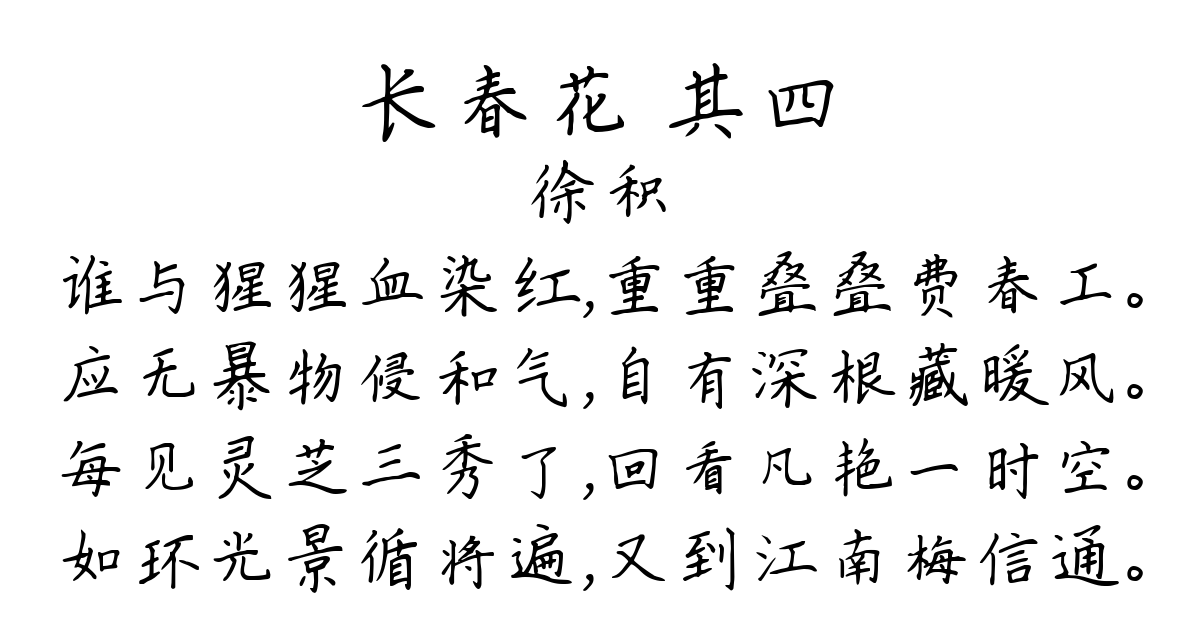 长春花 其四
徐积
谁与猩猩血染红,重重叠叠费春工。
应无暴物侵和气,自有深根藏暖风。
每见灵芝三秀了,回看凡艳一时空。
如环光景循将遍,又到江南梅信通。